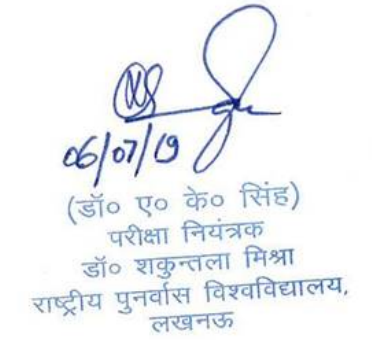 06/07/19
(डॉ० ए० के० सिंह)
परीक्षा नियंत्रक
डॉ० शकुन्तला मिश्रा
राष्ट्रीय पुनर्वास विश्वविद्यालय,
लखनऊ